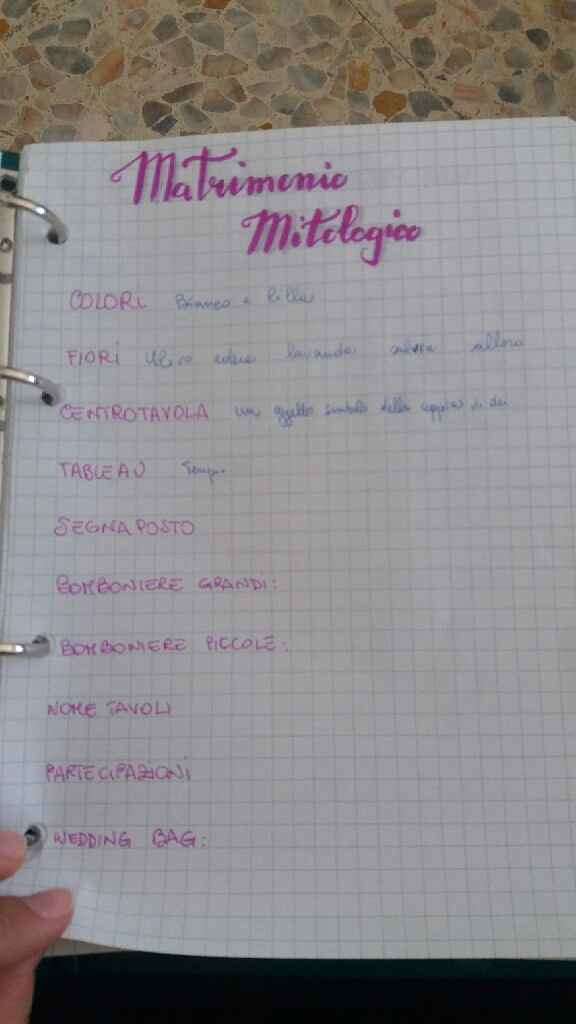 Matrimonio
Mitologico
COLORI Bianco e lilla
FIORI Ulivo edera lavanda alloro
CENTROTAVOLA un oggetto simbolo della coppia di dei
TABLEAU
SEGNAPOSTO
BOMBONIERE GRANDI:
BOMBONIERE PICCOLE:
NOME TAVOLI
PARTECIPAZIONI
WEDDING BAG: